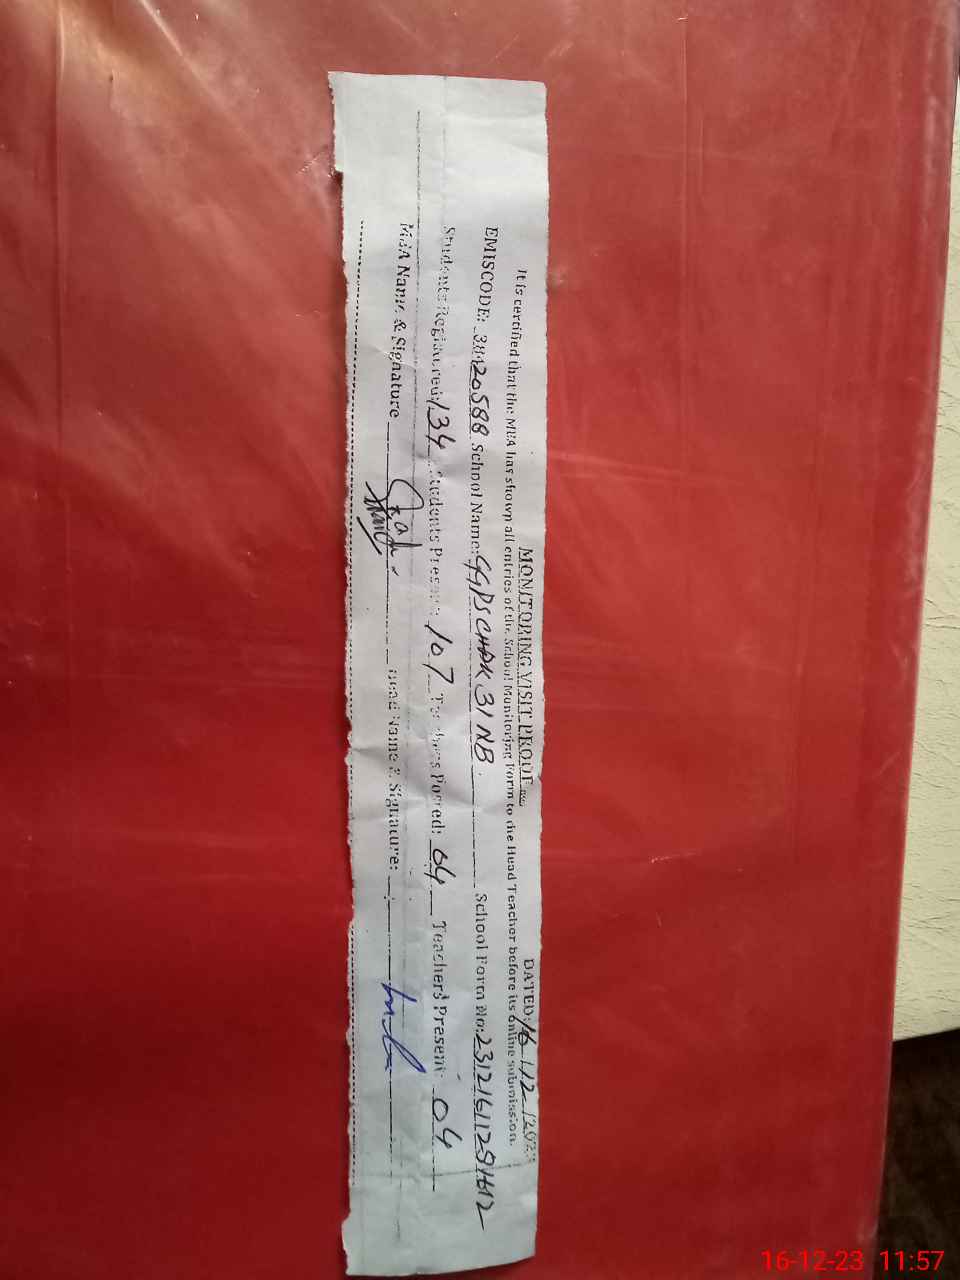 MONITORING VISIT PROOF DATED: 16/12/202
It is certified that the MEA has shown all entries of the School Monitoring Form to the Head Teacher before its online submission.
EMISCODE: 38420588 School Name: GGPS CHAK 31 NB School Form No: 2312161129
Students Registered: 134 Students Present: 107 Teachers Posted: 04 Teachers Present: 04
MEA Name & Signature Head Name & Signature:
16-12-23 11:57